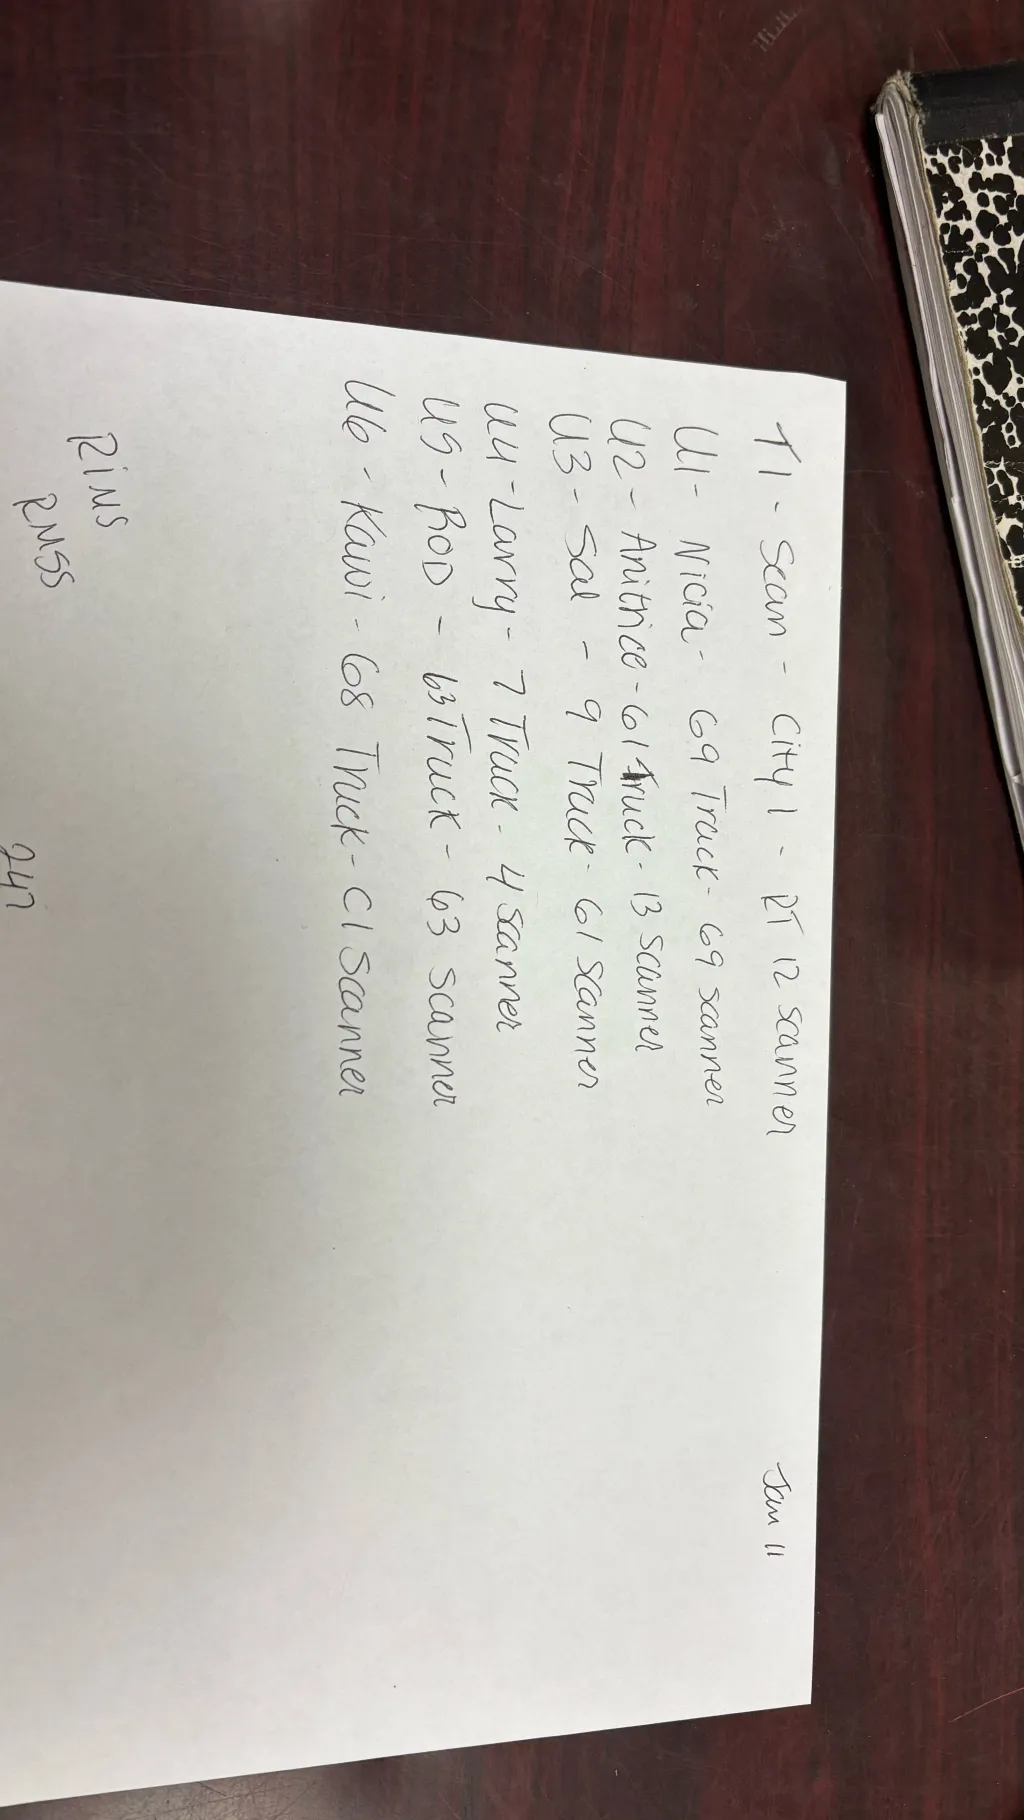 Jan 11
T1 - Sean - City 1 - RT 12 scanner
U1 - Nicia - 69 Truck - 69 scanner
U2 - Anitrice - 61 Truck - 13 scanner
U3 - Sal - 9 Truck - 61 scanner
U4 - Larry - 7 Truck - 4 scanner
U5 - ROD - 63 Truck - 63 scanner
U6 - Kawi - 68 Truck - C1 Scanner
RINS
RMSS
247